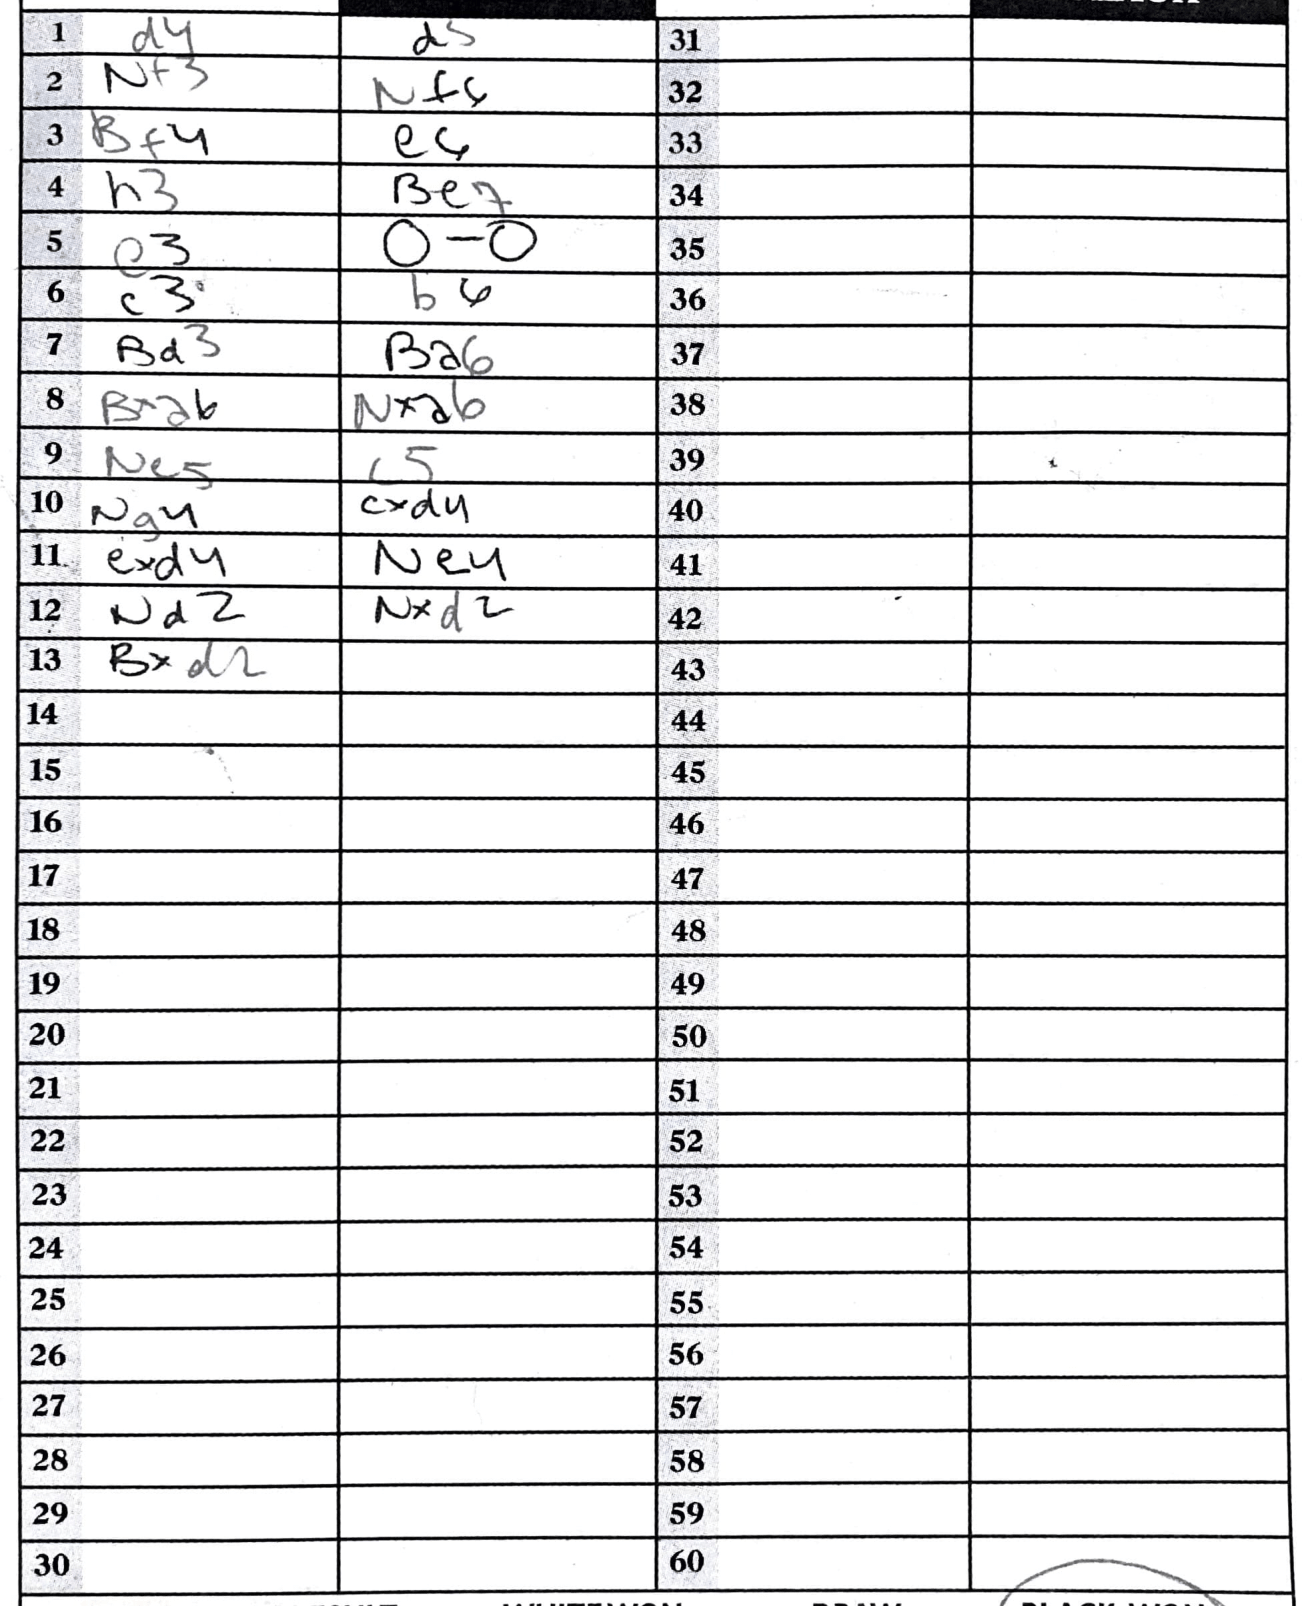 1 d4 d5 31
2 Nf3 Nf6 32
3 Bf4 e6 33
4 h3 Be7 34
5 e3 O-O 35
6 c3 b6 36
7 Bd3 Ba6 37
8 Bxa6 Nxa6 38
9 Ne5 c5 39
10 Ng4 cxd4 40
11 exd4 Ne4 41
12 Nd2 Nxd2 42
13 Bxd2 43
14 44
15 45
16 46
17 47
18 48
19 49
20 50
21 51
22 52
23 53
24 54
25 55
26 56
27 57
28 58
29 59
30 60